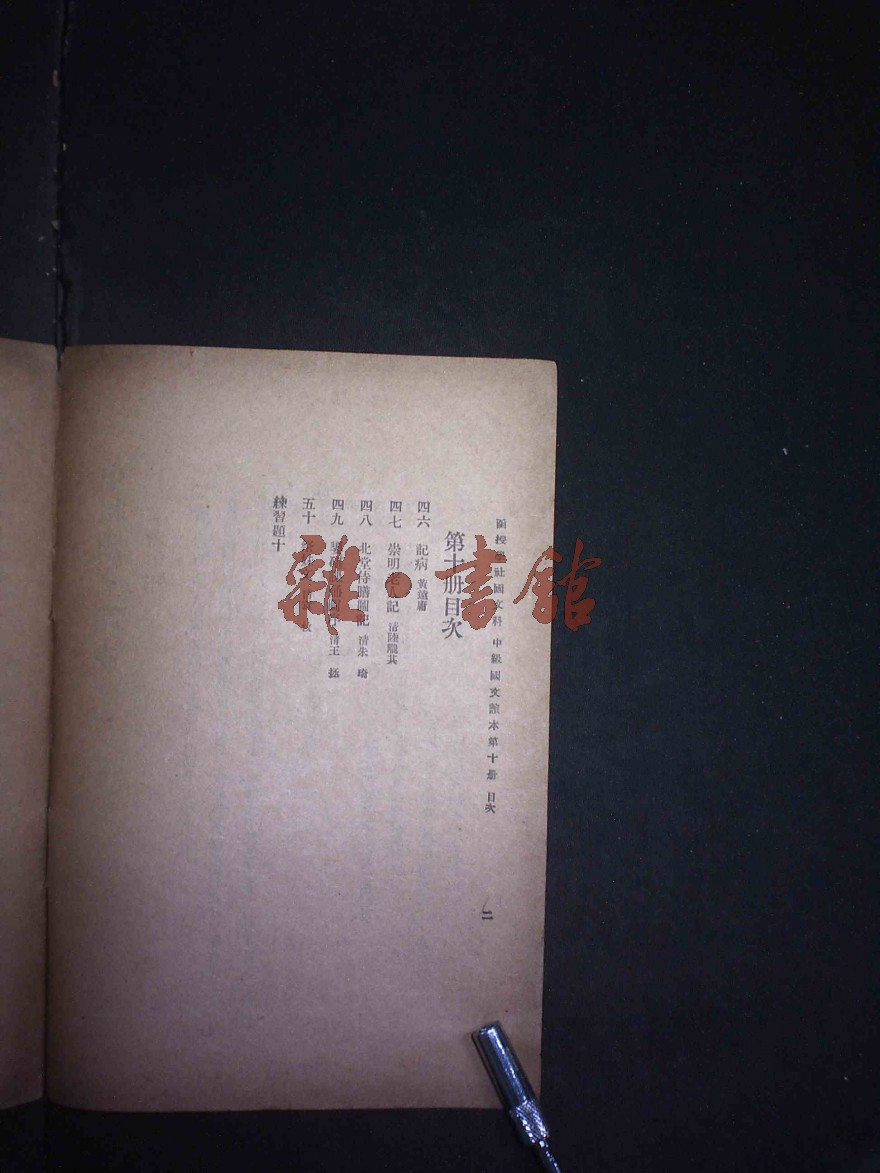 函授學社國文科 中級國文讀本第十册 目次
二
第十册目次
四六 記病 黃遠庸
四七 崇明老人記 清陸隴其
四八 北堂侍膳圖記 清朱 琦
四九 清王 拯
五十
練習題十
雜·書館